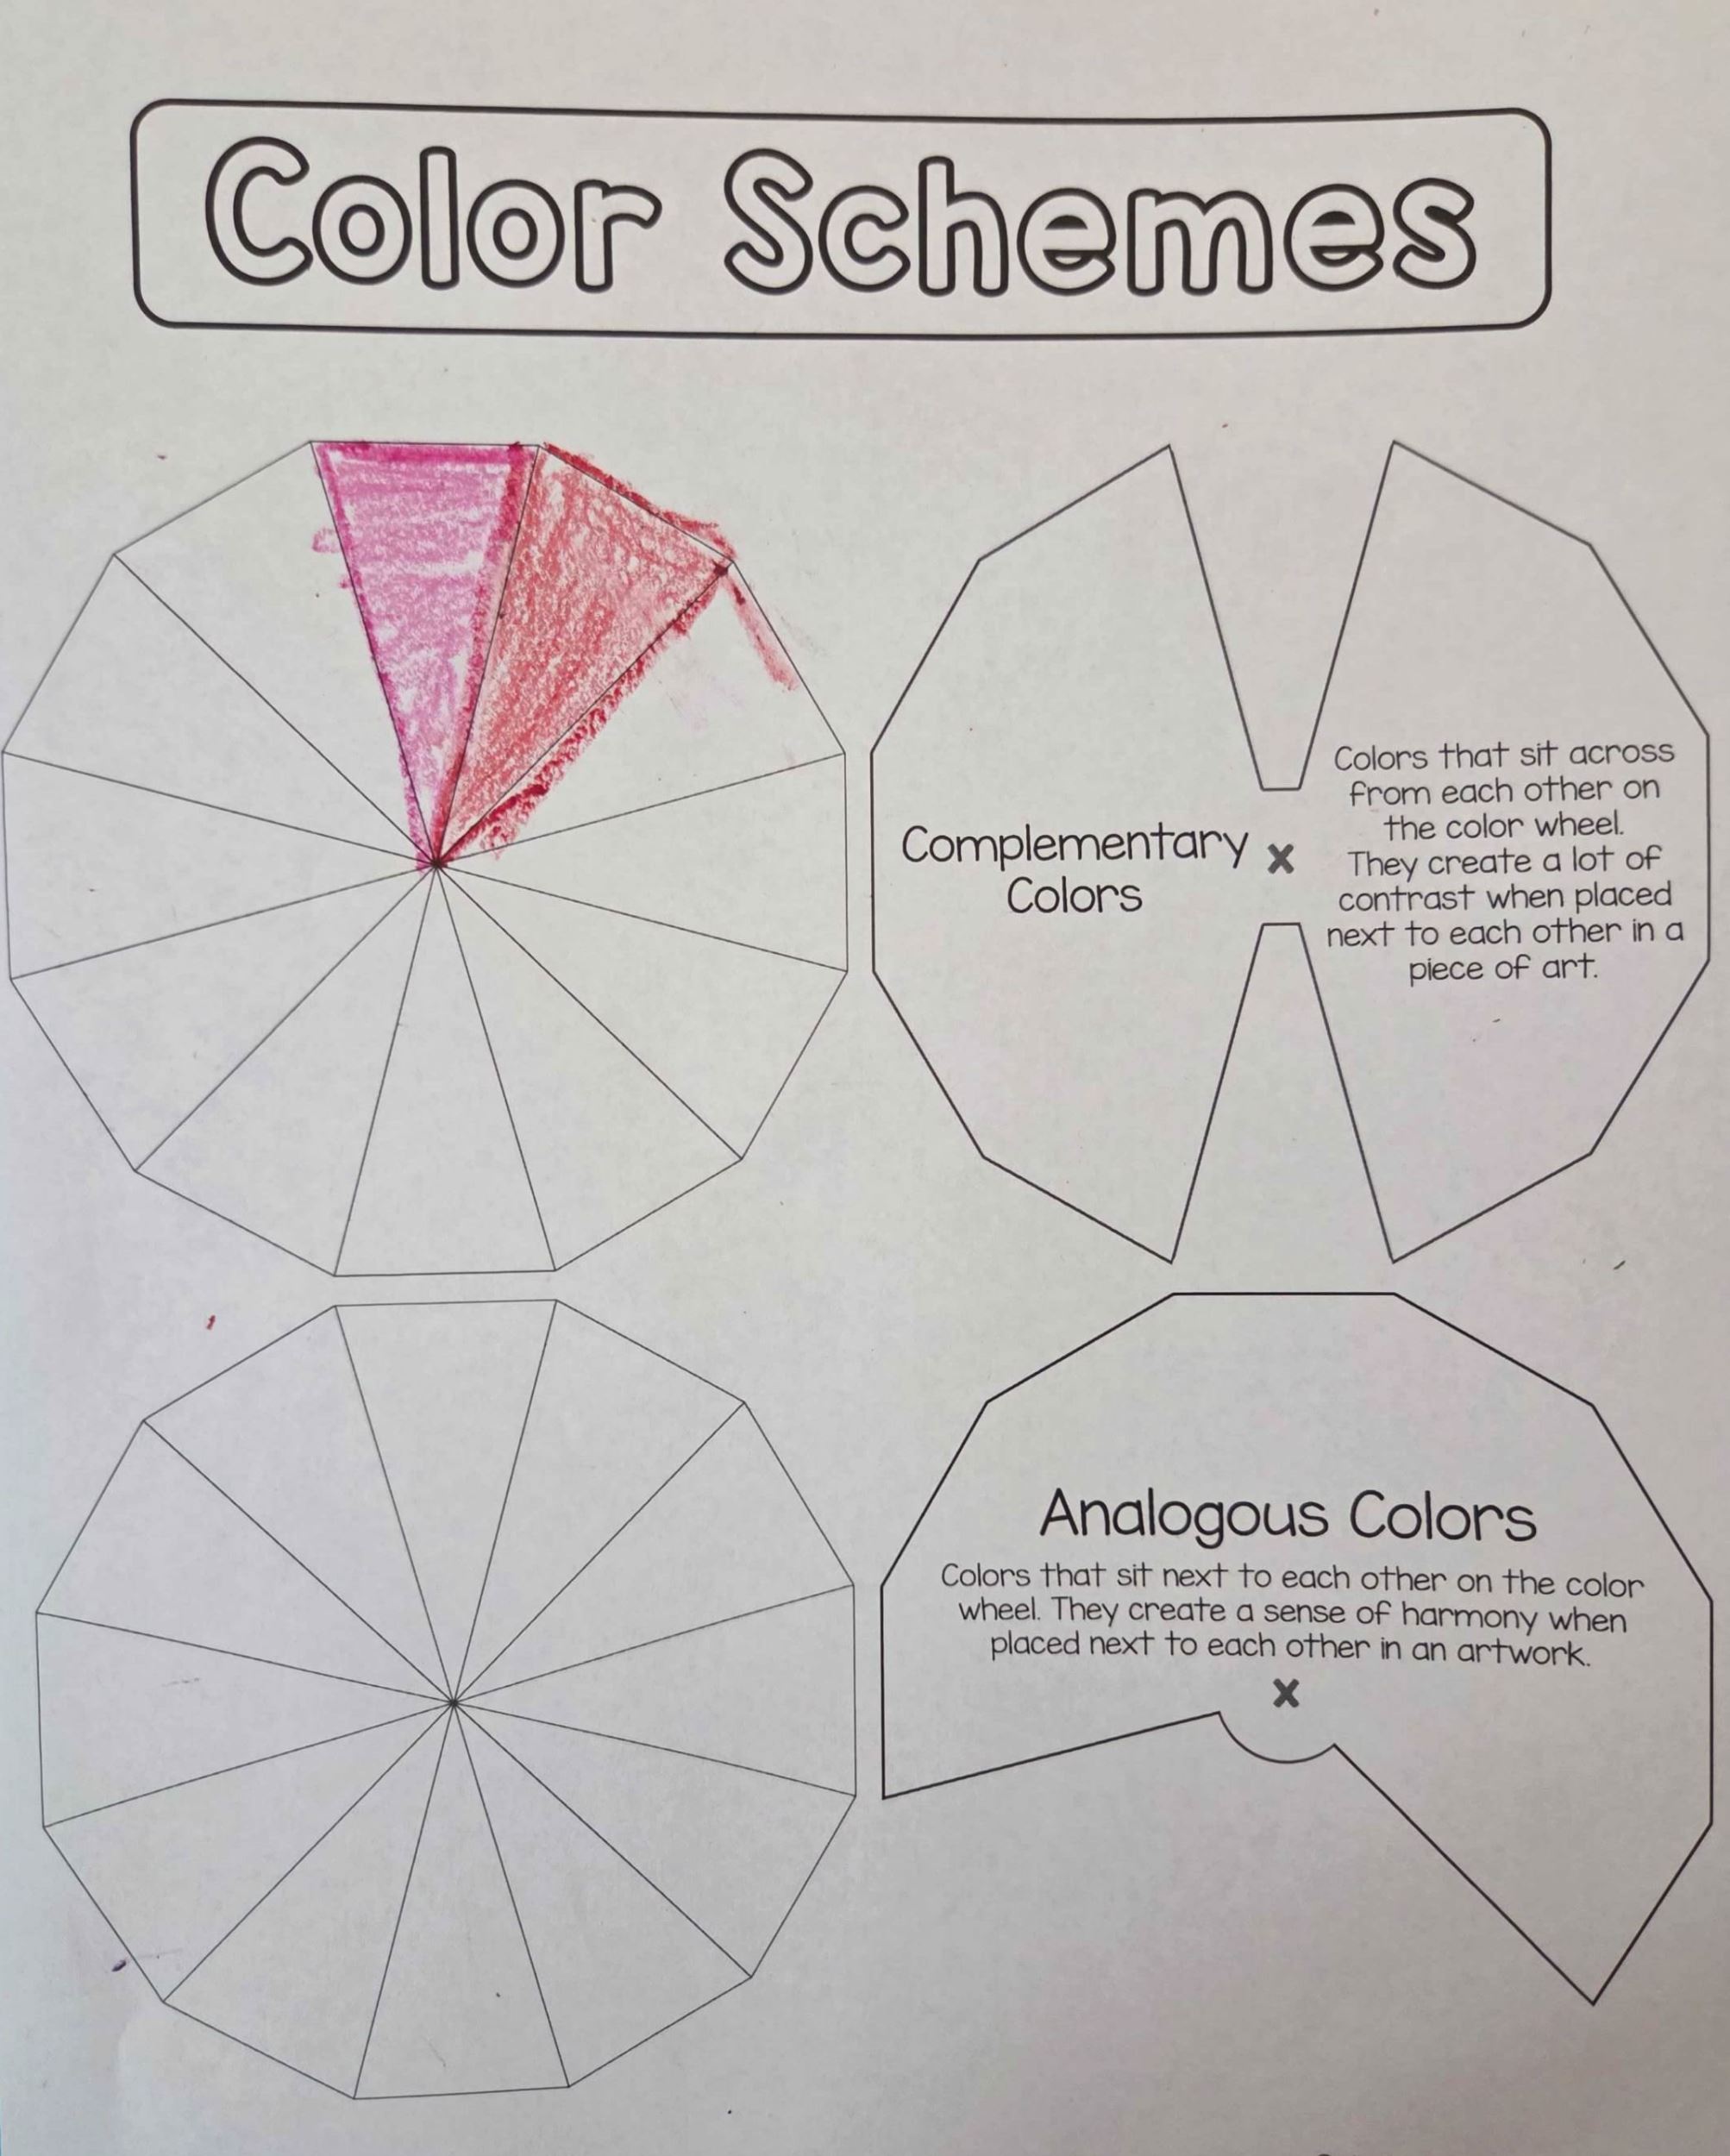 Color Schemes
Complementary
Colors
x
Colors that sit across
from each other on
the color wheel.
They create a lot of
contrast when placed
next to each other in a
piece of art.
Analogous Colors
Colors that sit next to each other on the color
wheel. They create a sense of harmony when
placed next to each other in an artwork.
x